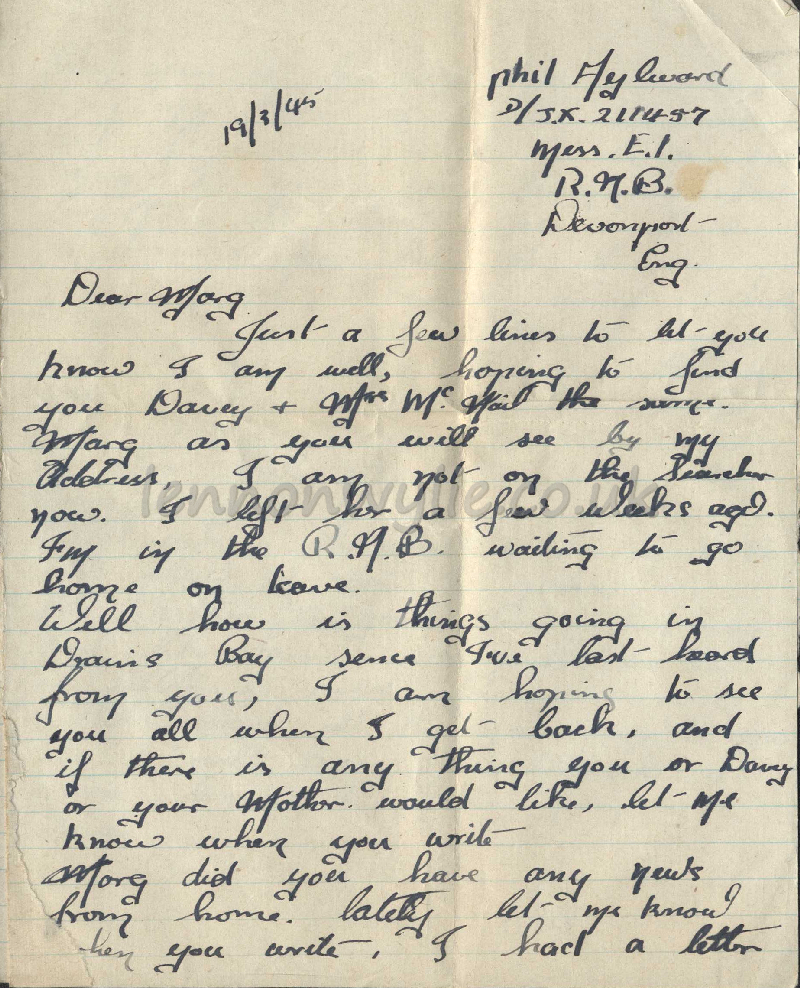 Phil Aylward
19/3/45
D/J.X. 211457
Mess. E.1.
R.N.B.
Devonport
Eng.
Dear Marg
Just a few lines to let you
know I am well, hoping to find
you Davey + Mrs Mc Nail the same.
Marg as you will see by my
Address, I am not on the Searcher
now. I left her a few weeks ago.
I'm in the R.N.B. waiting to go
home on leave.
Well how is things going in
Drains Bay sence I've last heard
from you, I am hoping to see
you all when I get back, and
if there is any thing you or Davey
or your Mother would like, let me
know when you write
Marg did you have any news
from home. lately let me know
hen you write, I had a letter
lennonwylie.co.uk